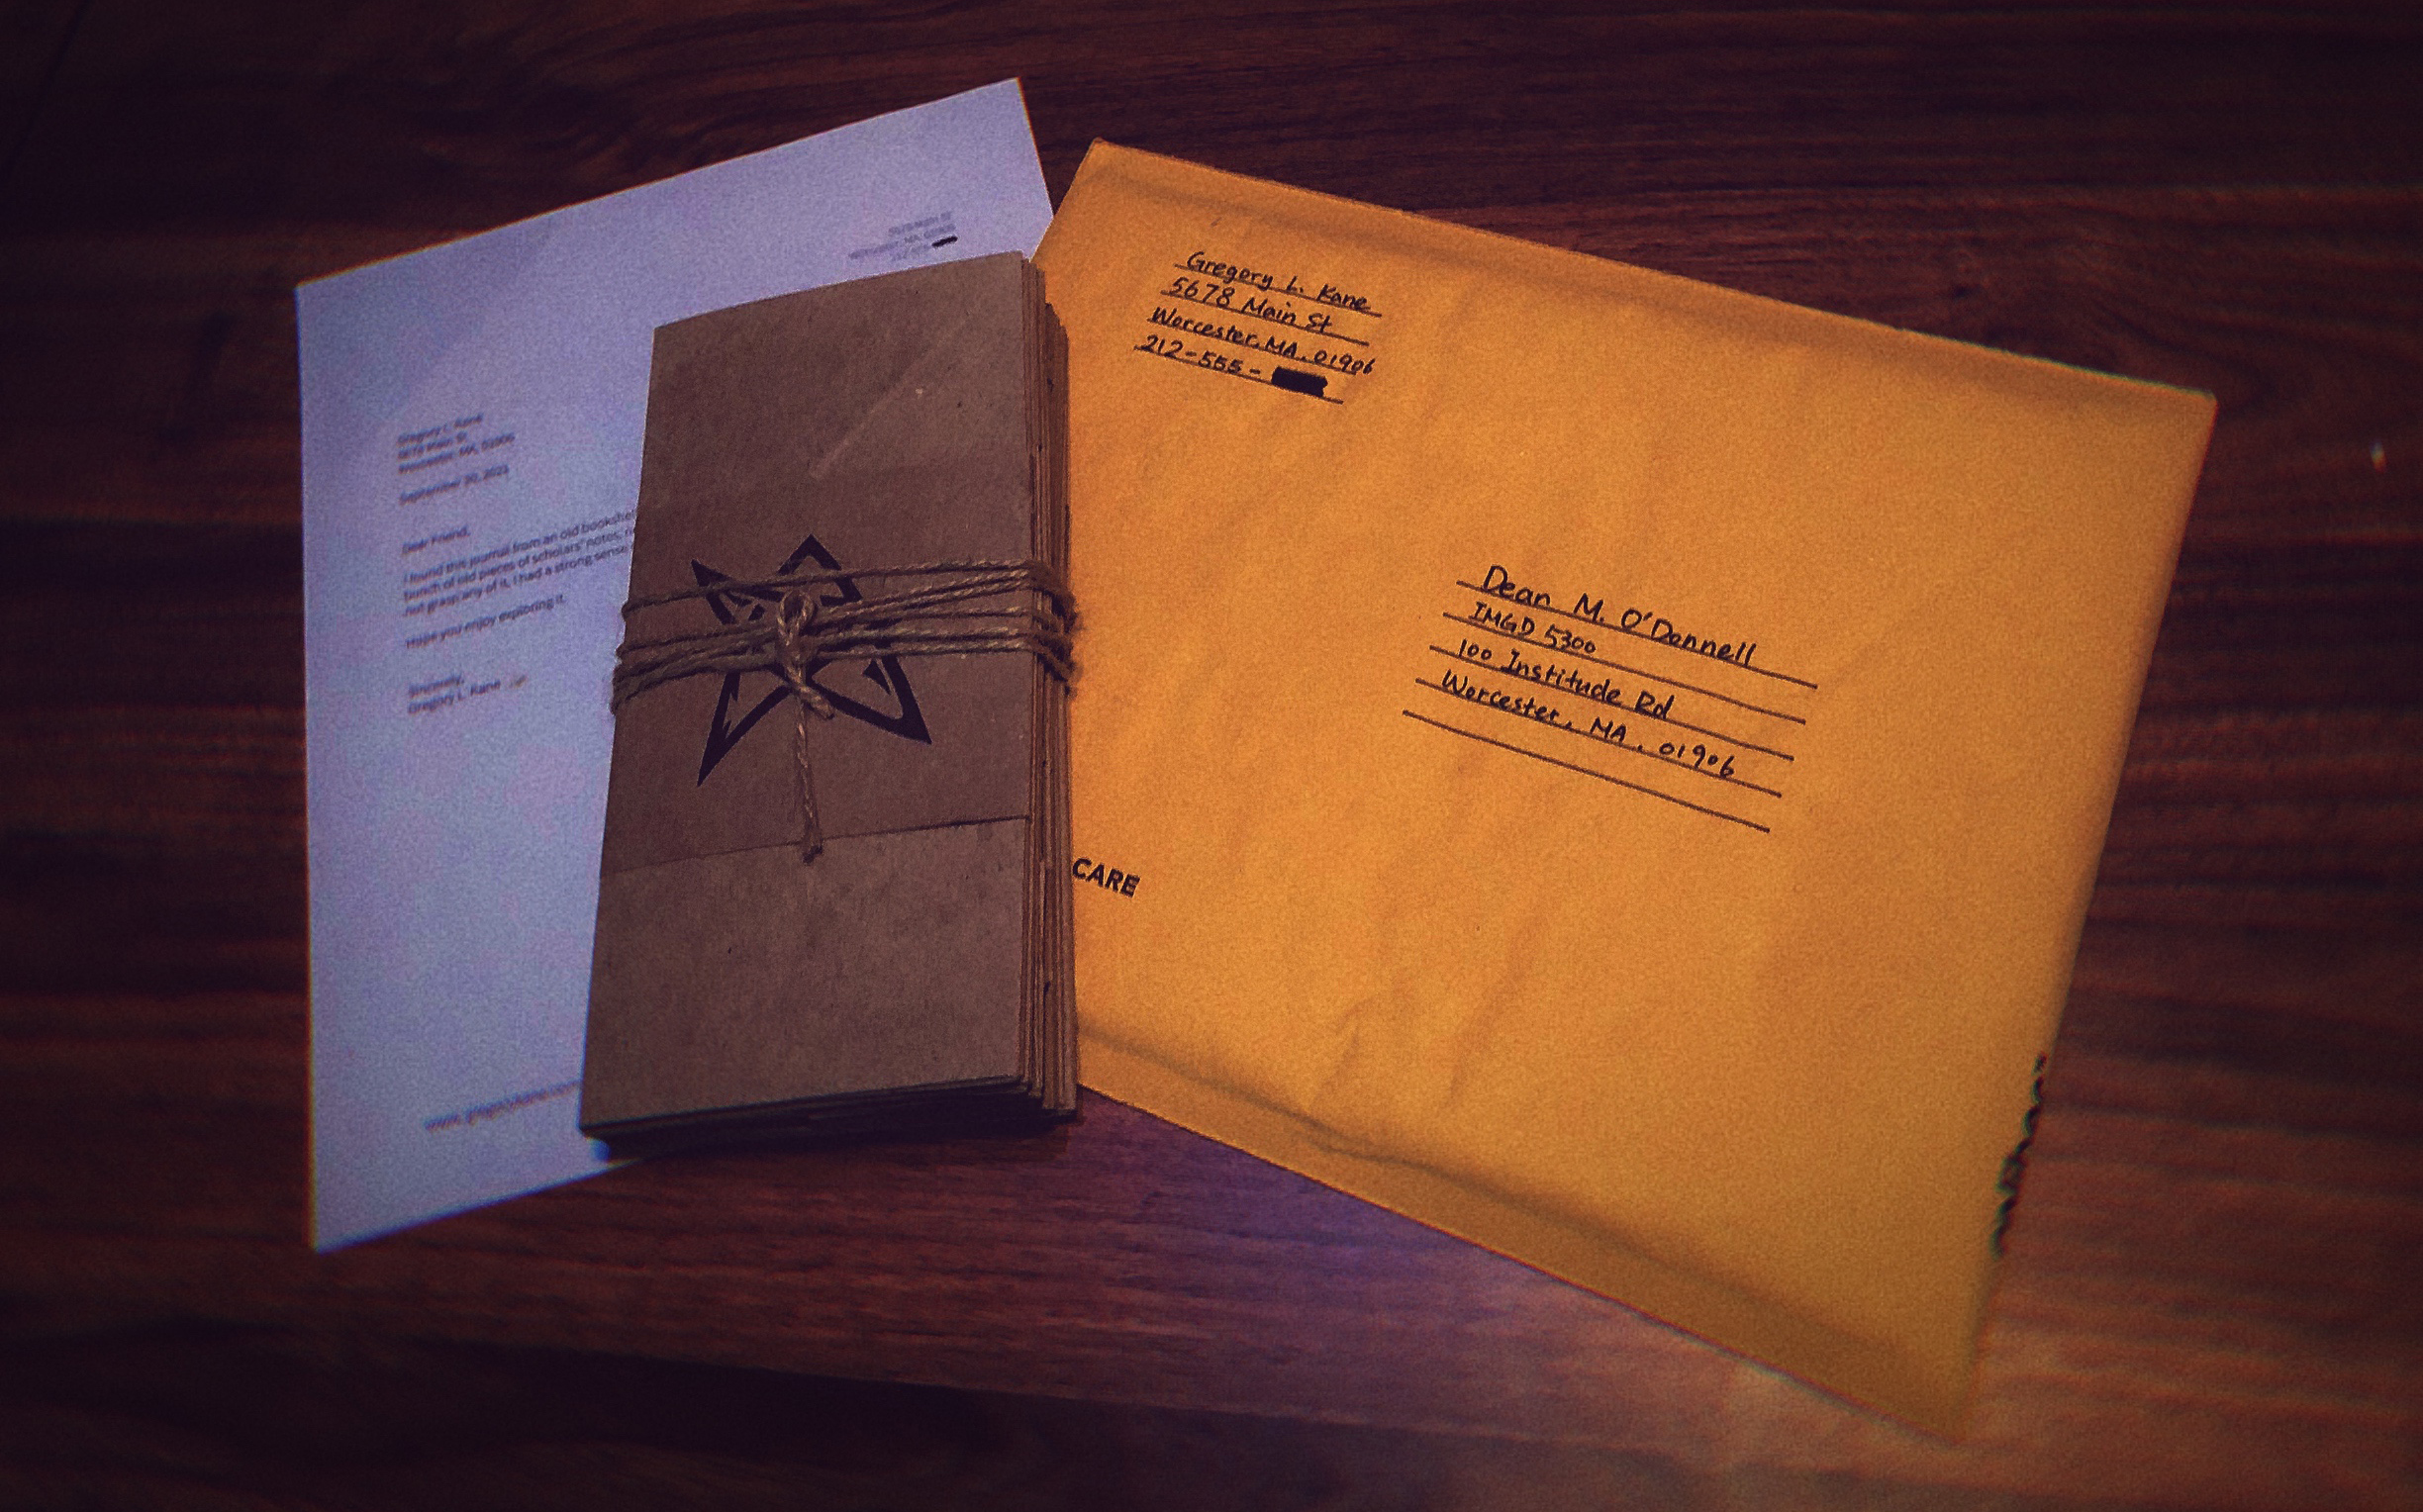 Gregory L. Kane
5678 Main St
Worcester, MA, 01906
September 30, 2021
Dear Friend,
I found this journal from an old bookshel
bunch of old pieces of scholars' notes,
not grasp any of it, I had a strong sense
Hope you enjoy exploring it.
Sincerely,
Gregory L. Kane
Gregory L. Kane
5678 Main St
Worcester, MA, 01906
212-555-
Dean M. O'Donnell
IMGD 5300
100 Institude Rd
Worcester, MA. 01906
CARE